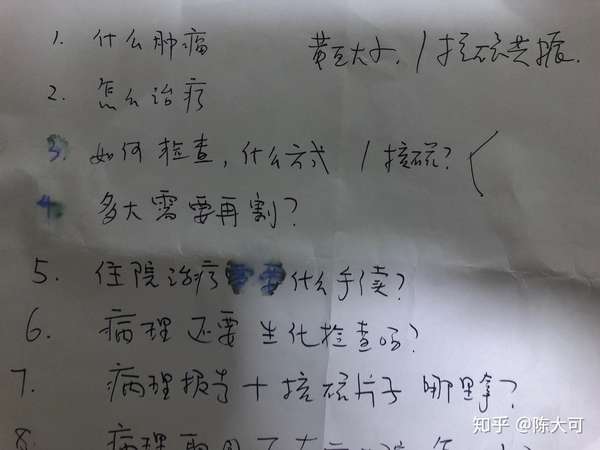 1. 什么肿瘤 黄豆大小, / 核磁共振.
2. 怎么治疗
3. 如何检查, 什么方式 / 核磁? (
4. 多大需要再割?
5. 住院治疗需要什么手续?
6. 病理还要生化检查吗?
7. 病理报告+核磁片子哪里拿?
8. 病理
知乎 @陈大可